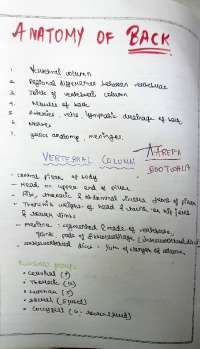 ANATOMY OF BACK
1. Vertebral column
2. Regional differences between vertebrae
3. Joints of vertebral column
4. Muscles of back
5. Arteries, veins, lymphatic drainage of back
6. Nerves
7. anatomy, meninges.
VERTEBRAL COLUMN
- central pillar of body
- Head on upper end of pillar
- Ribs, thoracic & abdominal front of pillar
- weight of head & trunk to hip joints
& lower limbs
- segmented & made of vertebrae,
joints, pads of fibrocartilage (intervertebral discs)
- intervertebral discs - 1/4th of length of column
- Cervical (7)
- Thoracic (12)
- Lumbar (5)
- Sacral (5 fused)
- Coccygeal (4